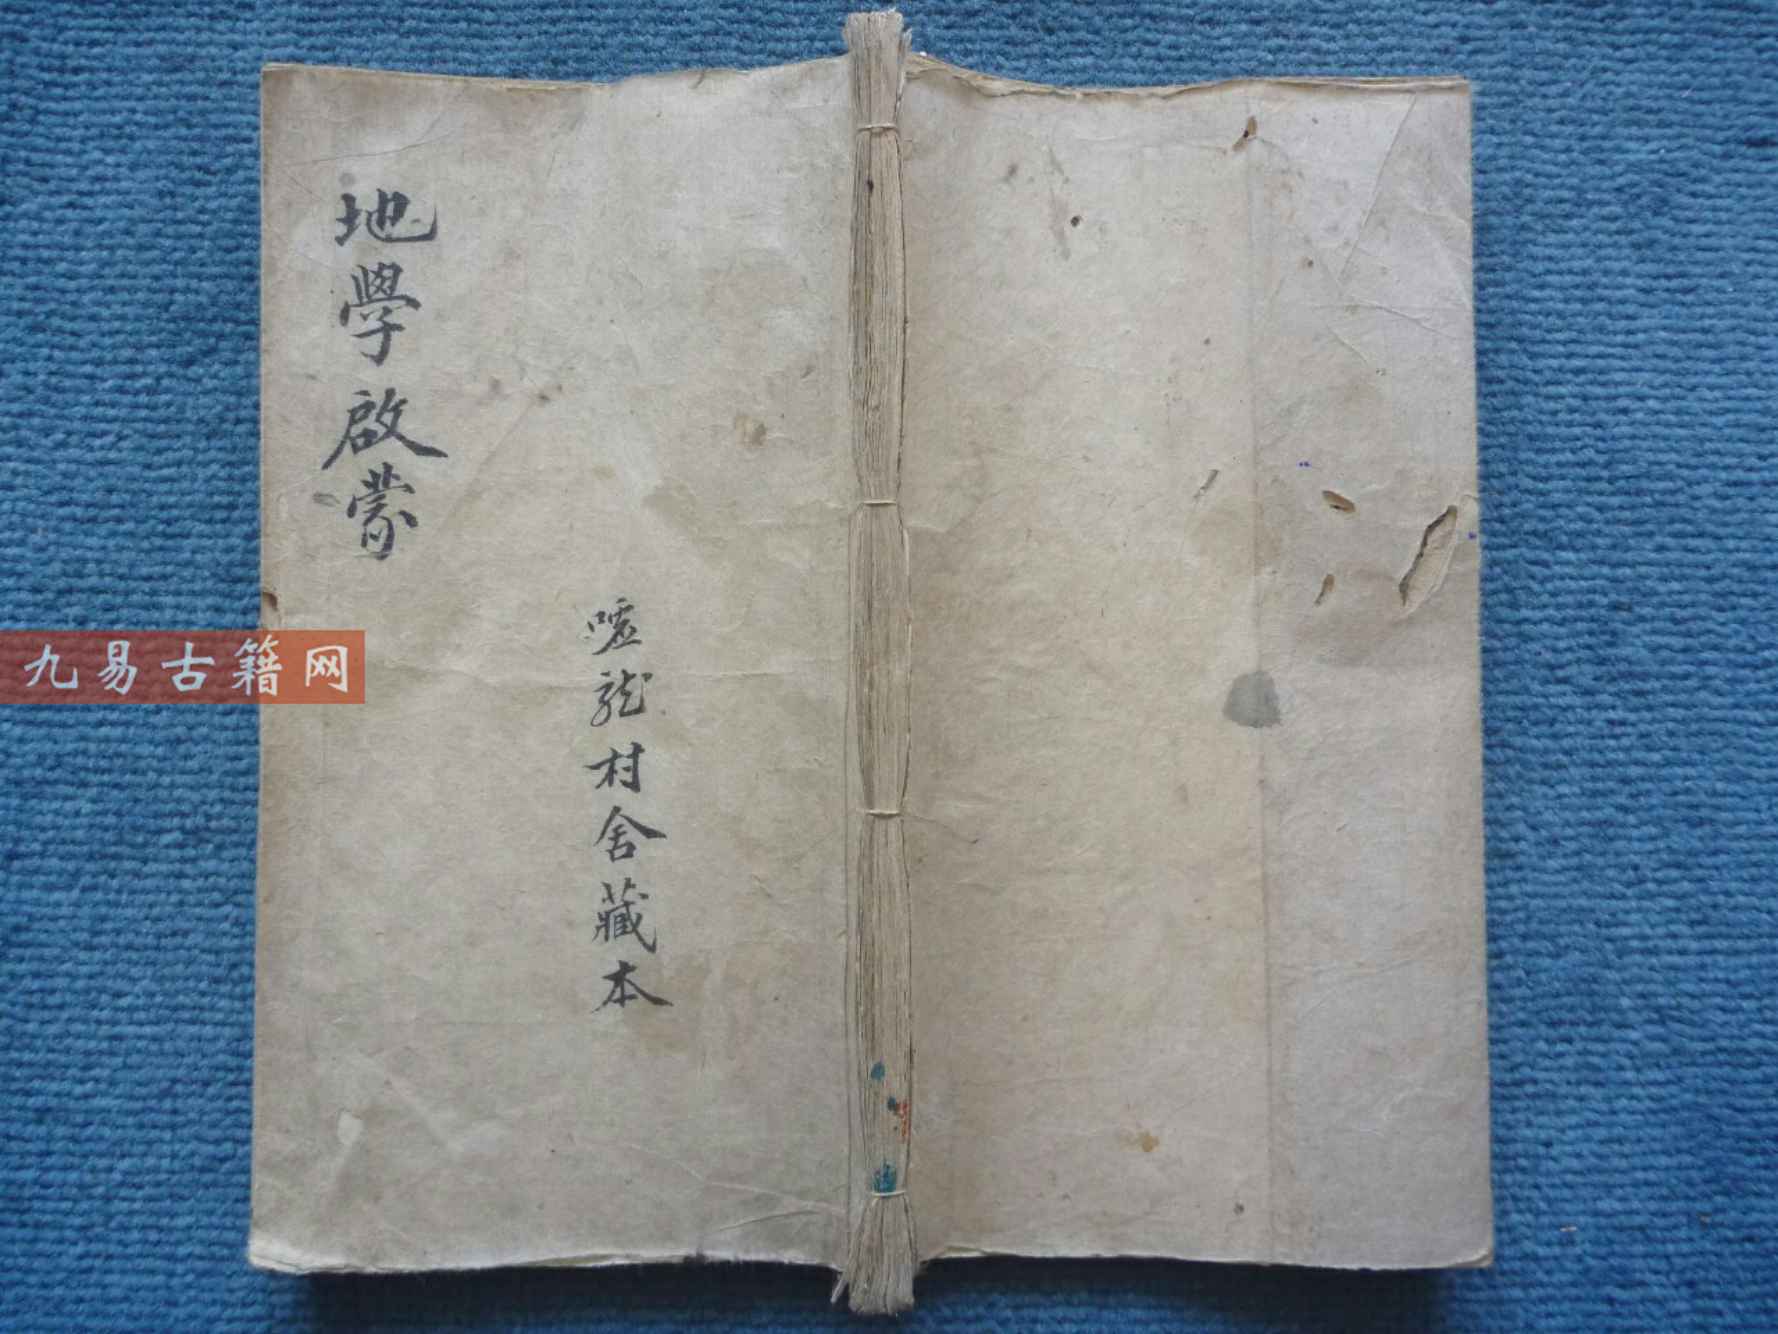 地學啟蒙
嘘龍村舍藏本
九易古籍网